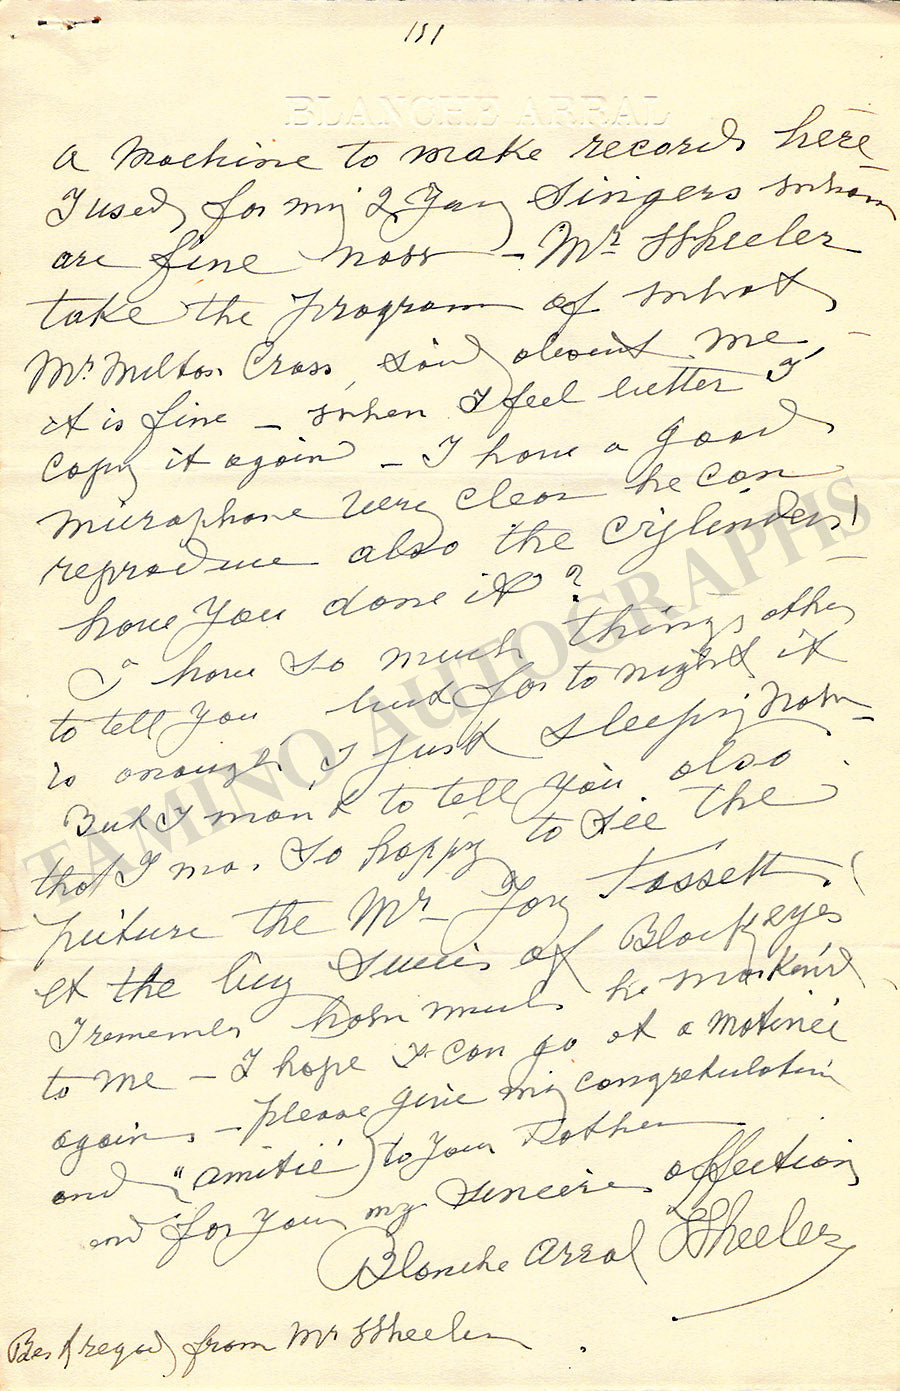 151
BLANCHE ARRAL
a Machine to make records here
I used for my 2 Singers whom
are fine now - Mr Wheeler
take the program of what
Mr. Milton Cross, said about me
it is fine - when I feel better I
copy it again - I have a good
microphone very clear he can
reproduce also the cylinders!
have you done it?
I have so much things other
to tell you but for to night it
is enough, I just sleeping now -
But I want to tell you also
that I was so happy to see the
picture the Mr Tassett!
et the big Succes of Black eyes
I remember how much he was kind
to me - I hope I can go at a matineé
again - please give my congratulation
and "amitié" to your
and for you my sincere affection
Blanche Arral Wheeler
Best regard from Mr Wheeler
TAMINO AUTOGRAPHS